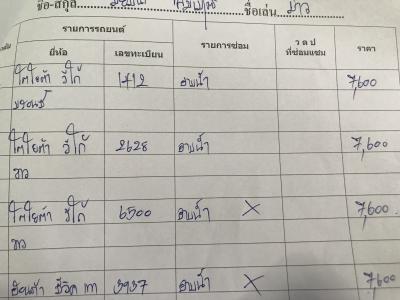 ชื่อ-สกุล ชื่อเล่น ขาว
รายการรถยนต์ รายการซ่อม ว ด ป ที่ซ่อมแซม ราคา
ยี่ห้อ เลขทะเบียน
โตโยต้า วีโก้ 1712 อาบน้ำ 7,600
บรอนซ์
โตโยต้า วีโก้ 2628 อาบน้ำ 7,600
ขาว
โตโยต้า วีโก้ 6500 อาบน้ำ X 7,600
ขาว
ฮอนด้า ซีวิค เทา 3937 อาบน้ำ X 7,600